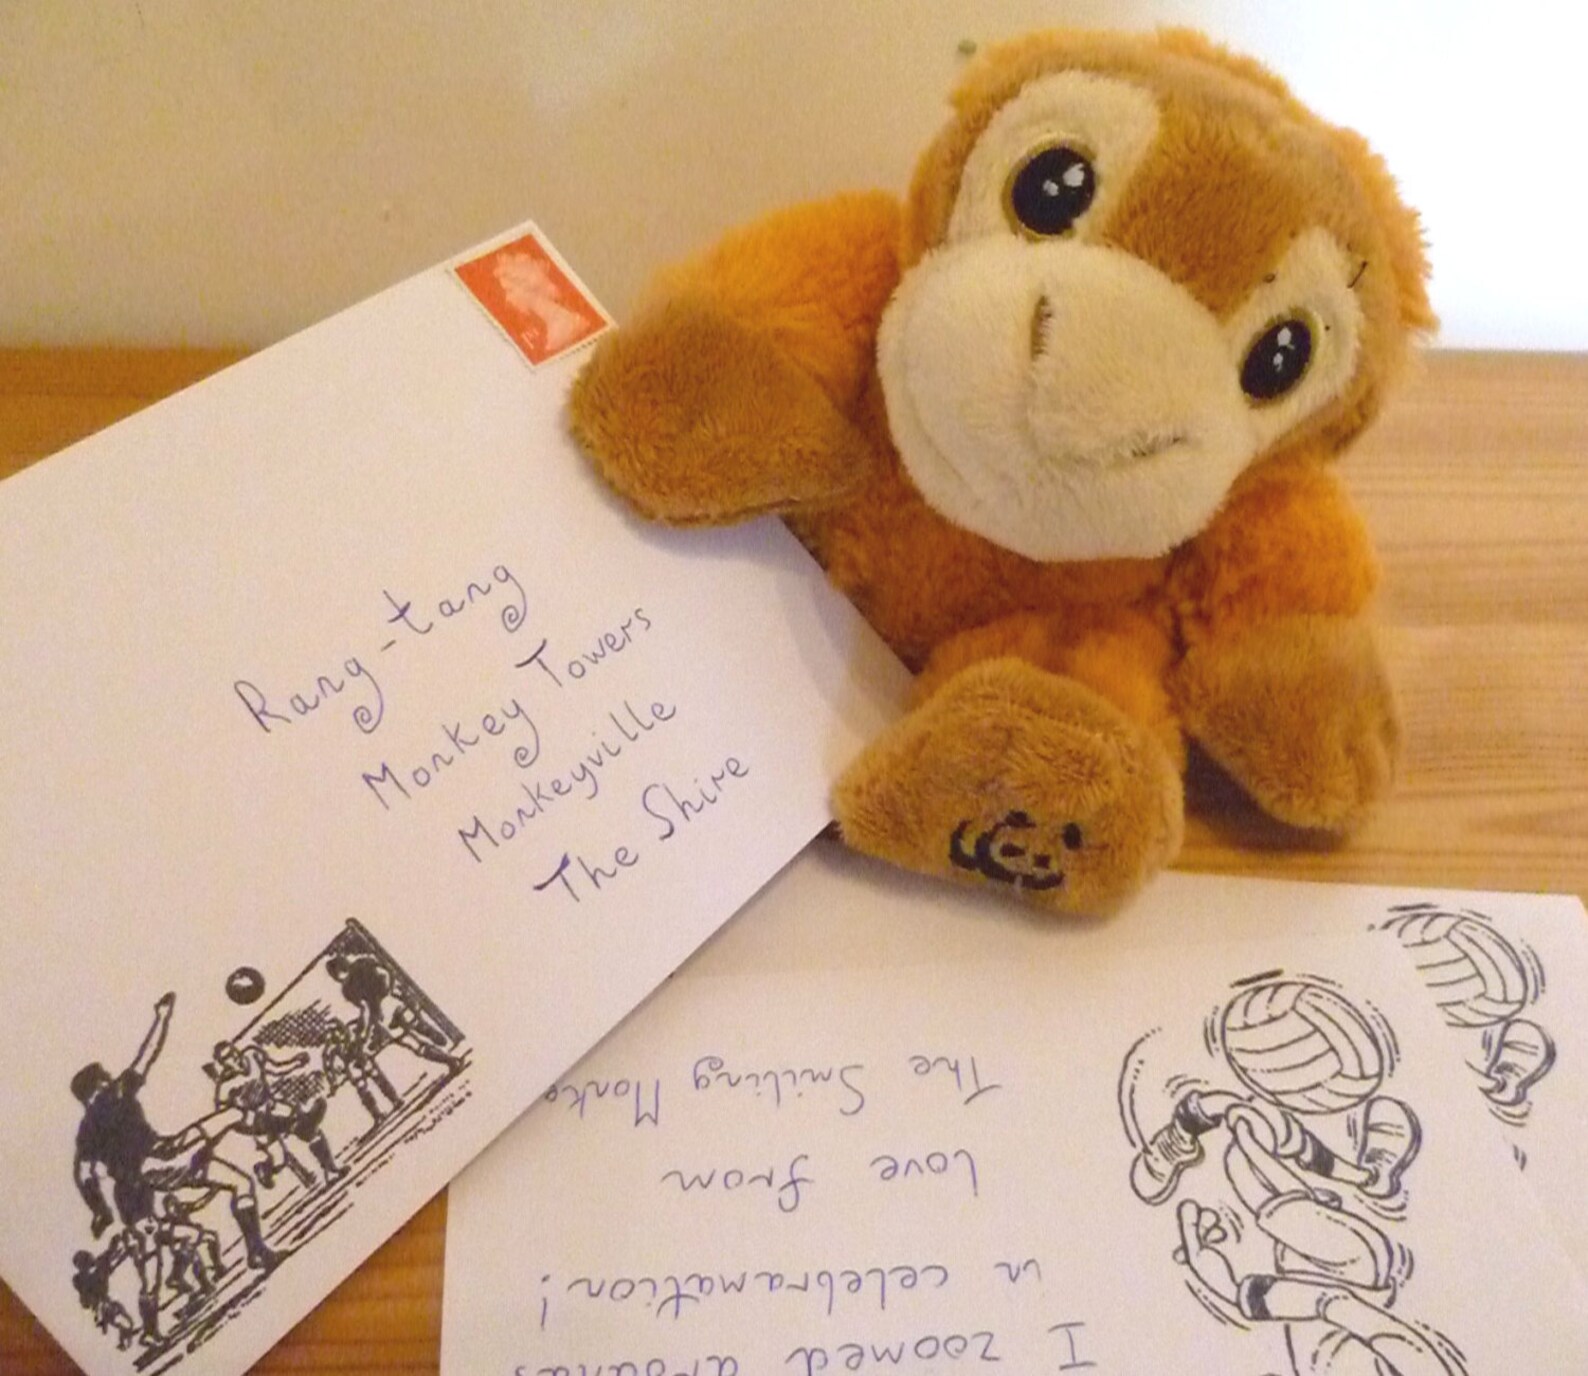 Rang-tang
Monkey Towers
Monkeyville
The Shire
I zoomed
in celebramation!
Love from
The Smiling